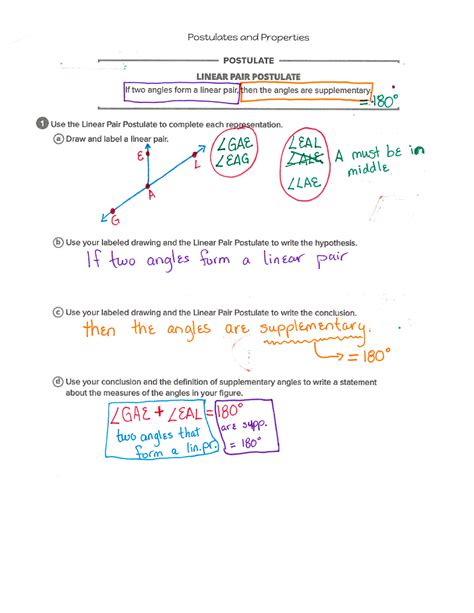 Postulates and Properties
POSTULATE
LINEAR PAIR POSTULATE
If two angles form a linear pair, then the angles are supplementary.
=180°
1 Use the Linear Pair Postulate to complete each representation.
a Draw and label a linear pair.
E
L
A
G
∠GAE
∠EAG
∠EAL
∠ALE
∠LAE
A must be in
middle
b Use your labeled drawing and the Linear Pair Postulate to write the hypothesis.
If two angles form a linear pair
c Use your labeled drawing and the Linear Pair Postulate to write the conclusion.
then the angles are supplementary.
→ = 180°
d Use your conclusion and the definition of supplementary angles to write a statement
about the measures of the angles in your figure.
∠GAE + ∠EAL = 180°
two angles that
form a lin. pr.
are supp.
= 180°